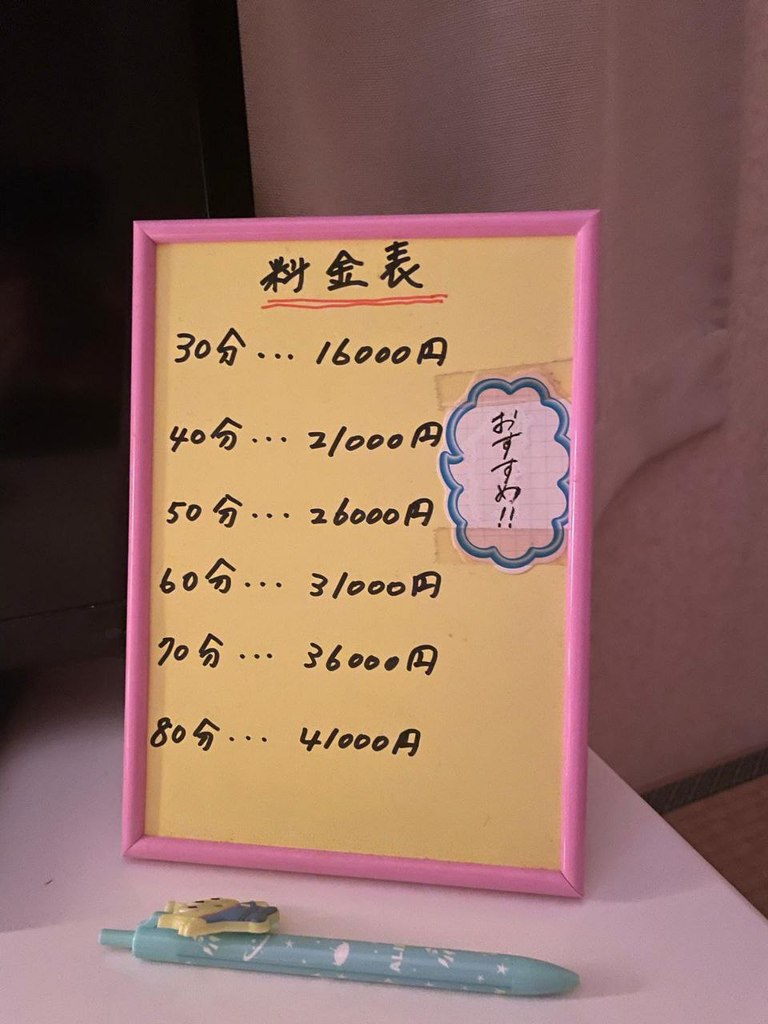 料金表
30分... 16000円
40分... 21000円
50分... 26000円
60分... 31000円
70分... 36000円
80分... 41000円
おすすめ!!